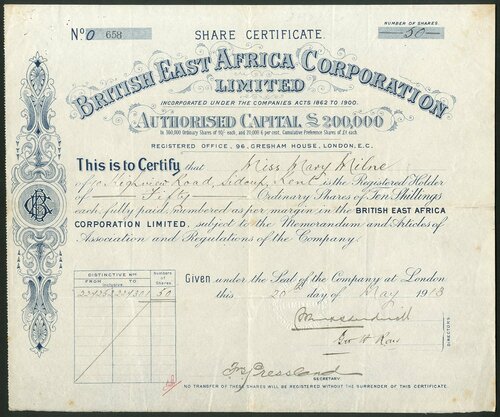 Nº O 658
SHARE CERTIFICATE.
NUMBER OF SHARES
50
BRITISH EAST AFRICA CORPORATION
LIMITED
INCORPORATED UNDER THE COMPANIES ACTS 1862 TO 1900.
AUTHORISED CAPITAL £200,000
In 360,000 Ordinary Shares of 10/- each, and 20,000 6 per cent. Cumulative Preference Shares of £1 each.
REGISTERED OFFICE, 96, GRESHAM HOUSE, LONDON, E.C.
This is to Certify that Miss Mary Milne
of Road, Sidcup, Kent is the Registered Holder
of Fifty Ordinary Shares of Ten Shillings
each, fully paid, numbered as per margin in the BRITISH EAST AFRICA
CORPORATION LIMITED, subject to the Memorandum and Articles of
Association and Regulations of the Company.
DISTINCTIVE Nos.
FROM TO
inclusive.
Numbers of Shares
50
Given under the Seal of the Company at London
this 20th day of May 1913
DIRECTORS.
Geo. H. Row
Pressland
SECRETARY
NO TRANSFER OF THESE SHARES WILL BE REGISTERED WITHOUT THE SURRENDER OF THIS CERTIFICATE.